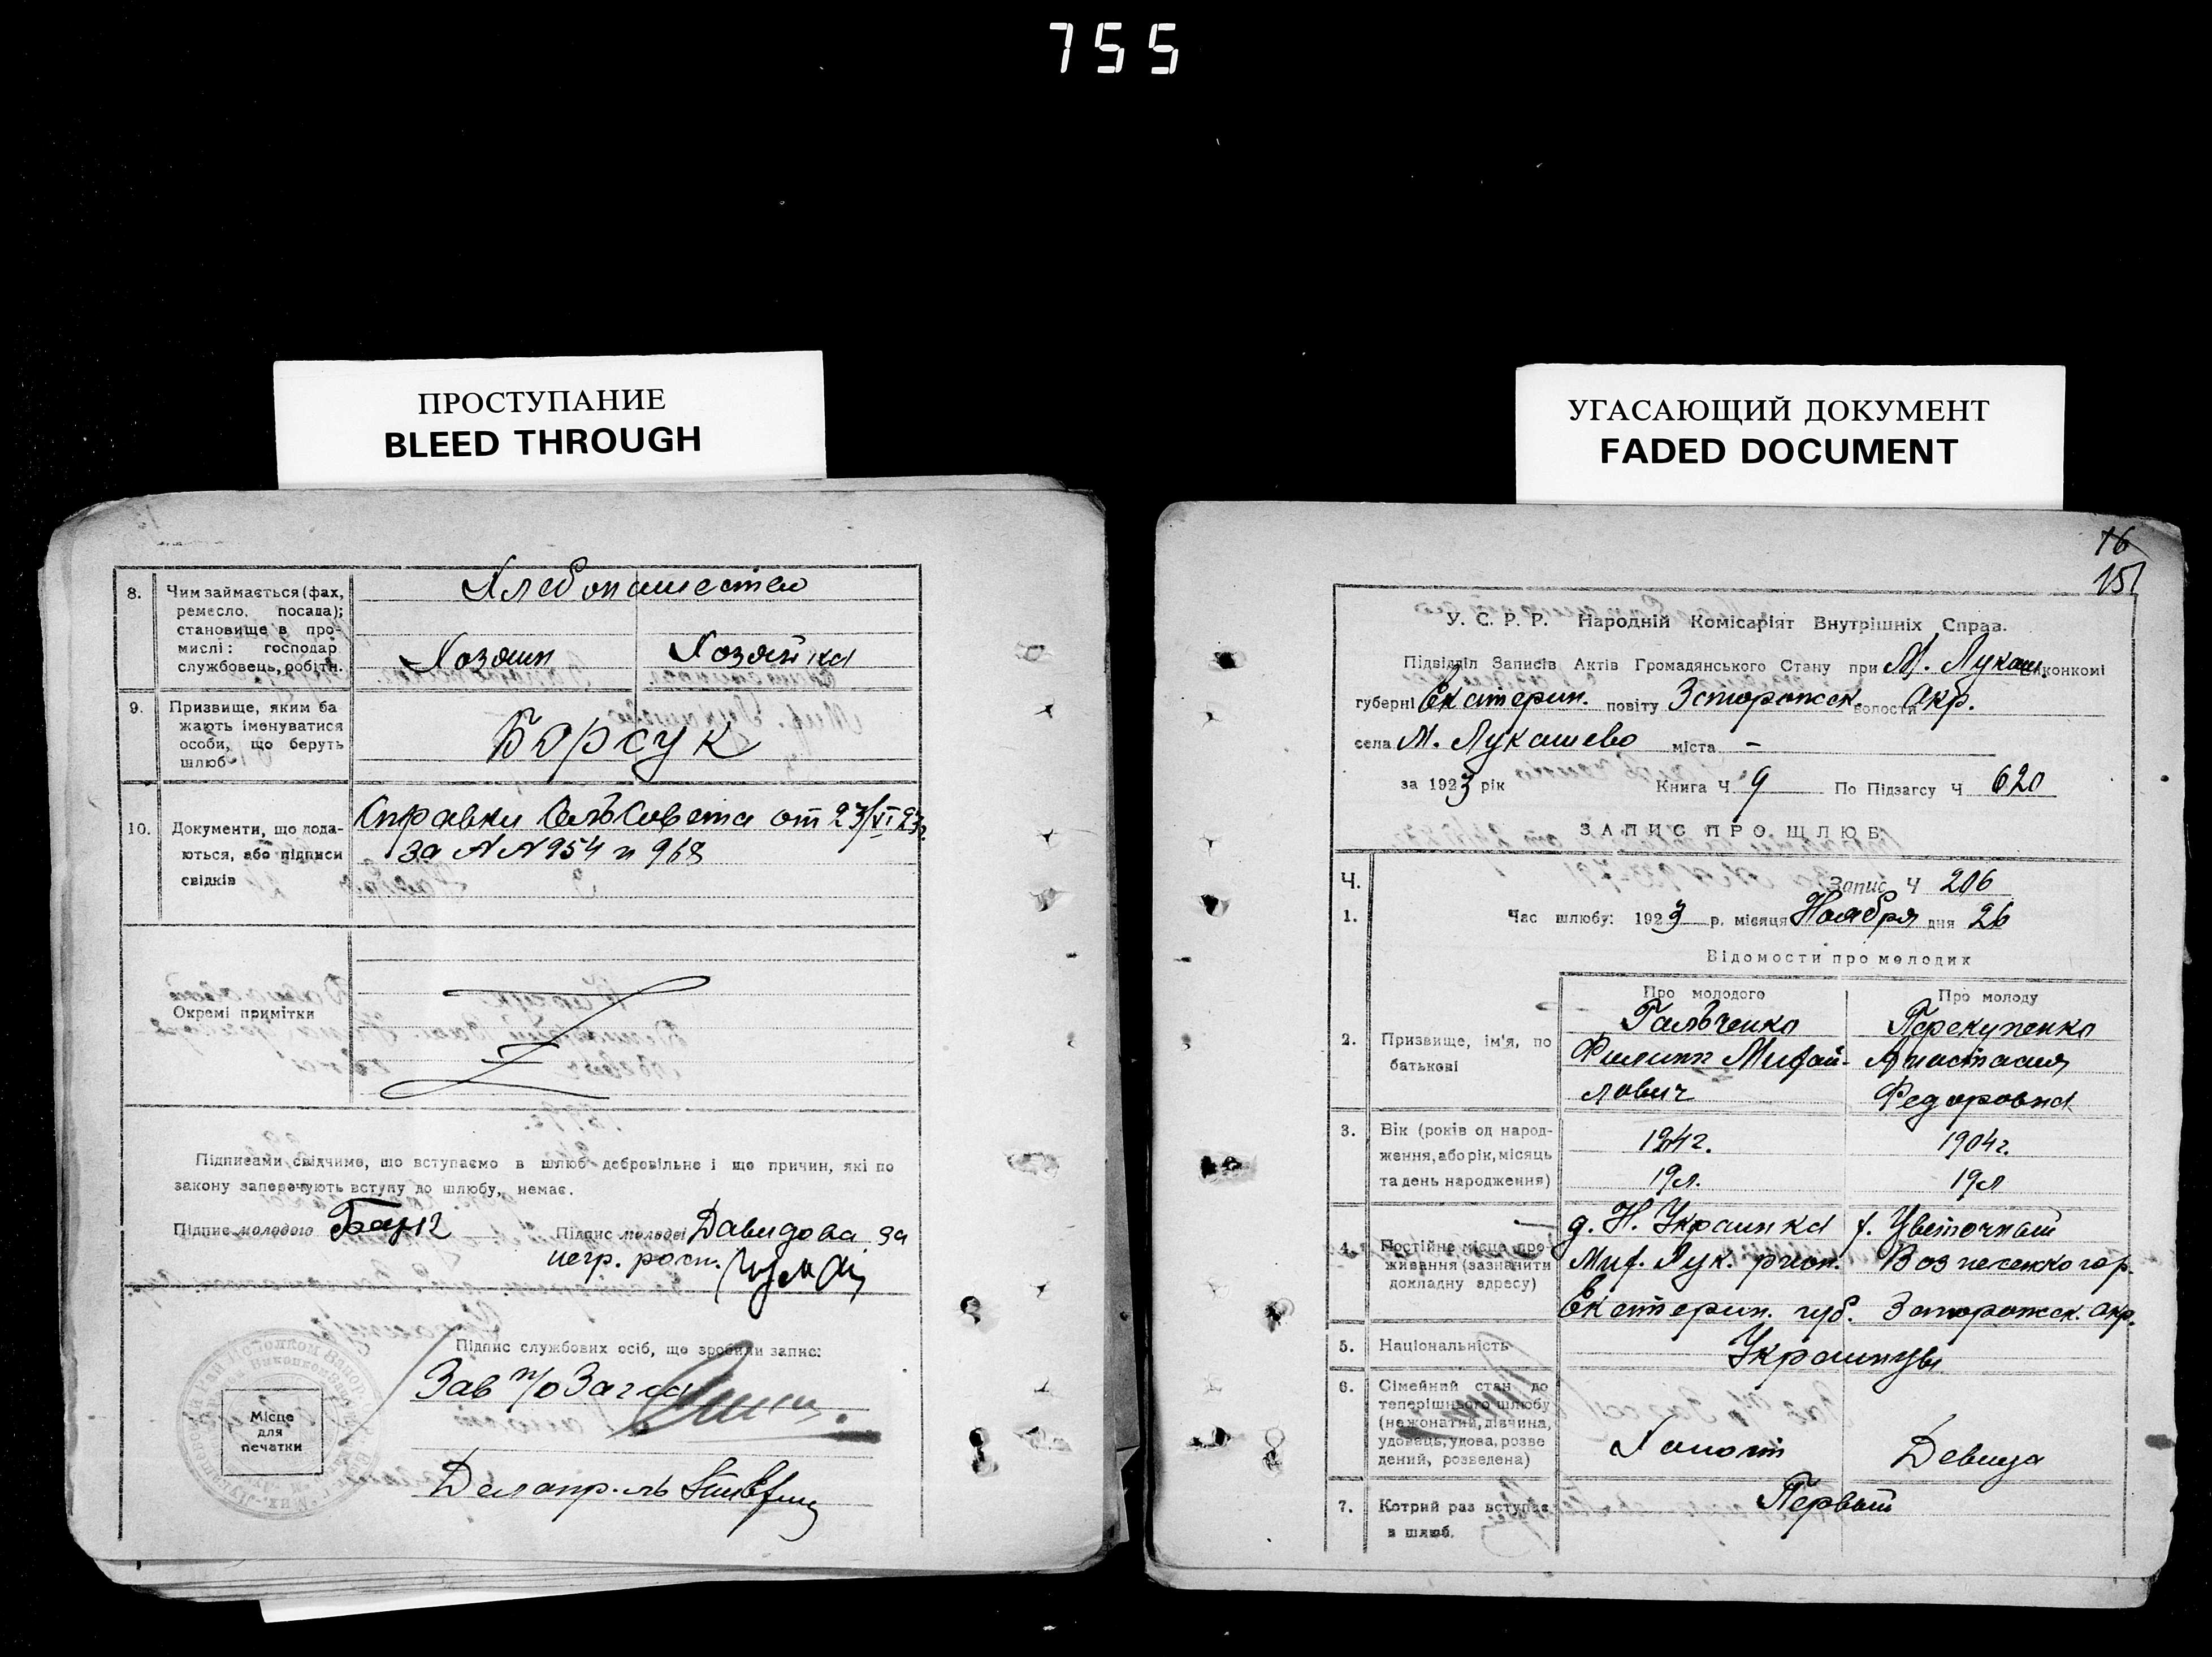 755
ПРОСТУПАНИЕ
BLEED THROUGH
УГАСАЮЩИЙ ДОКУМЕНТ
FADED DOCUMENT
8. Чим займається (фах,
ремесло, посада);
становище в про-
мислі: господар
службовець, робітн.
Хлебопашество
Хозяин Хозяйка
9. Призвище, яким ба
жають іменуватися
особи, що беруть
шлюб
Борсук
10. Документи, що пода-
ються, або підписи
свідків
Справки СельСовета от 23/VI 23г.
за NN 954 и 968
Окремі примітки
Підписами свідчимо, що вступаємо в шлюб добровільне і що причин, які по
закону заперечують вступу до шлюбу, немає.
Підпис молодого
Підпис молодої Давидова за
негр. росп.
Підпис службових осіб, що зробили запис:
Зав п/о Загса
Місце
для
печатки
Делопр-ль
16
15
У. С. Р. Р. Народній Комісаріят Внутрішніх Справ.
Підвідділ Записів Актів Громадянського Стану при М. Лукаш. виконкомі
губерні Екатерин. повіту Запорожск. волости Окр.
села М. Лукашево міста —
за 1923 рік Книга Ч 9 По Підзагсу Ч 620
ЗАПИС ПРО ШЛЮБ
Ч. Запис Ч 206
1. Час шлюбу: 1923 р. місяця Ноября дня 26
Відомости про молодих
Про молодого Про молоду
2. Призвище, ім'я, по
батькові
Гальченко
Филипп Михай-
лович
Перекупенко
Анастасия
Федоровна
3. Вік (років од народ-
ження, або рік, місяць
та день народження)
1904г.
19л.
1904г.
19л
4. Постійне місце про-
живання (зазначити
докладну адресу)
д. Н. Украинка
Мих. Лук. рион.
Екатерин. губ.
х. Цветочный
Вознесенко гор.
Запорожск. окр.
5. Національність
Украинцы
6. Сімейний стан до
теперішнього шлюбу
(нежонатий, дівчина,
удовець, удова, розве
дений, розведена)
Холост Девица
7. Котрий раз вступає
в шлюб.
Первый